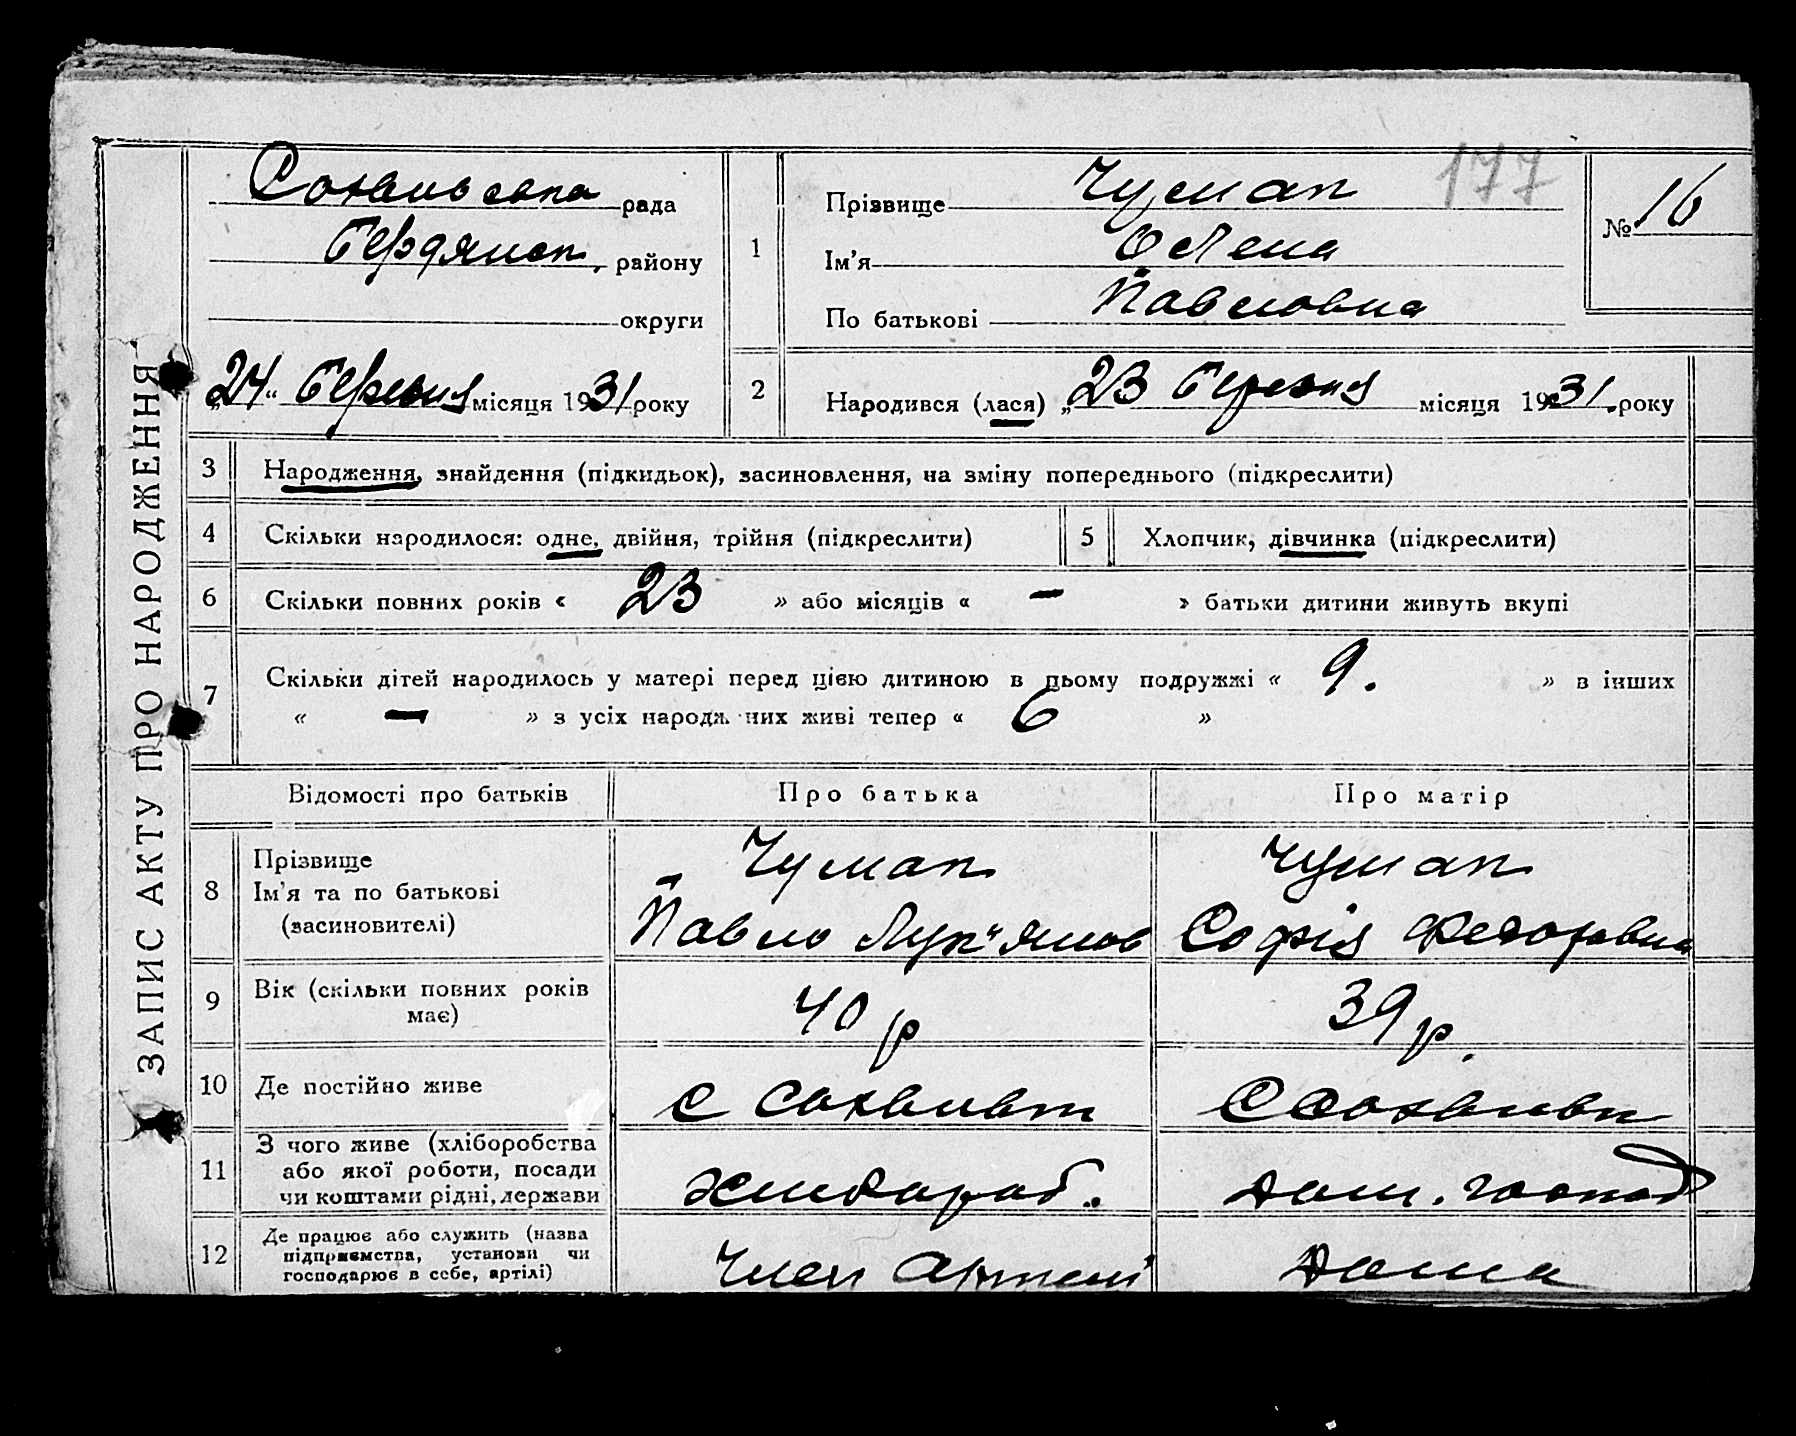 ЗАПИС АКТУ ПРО НАРОДЖЕННЯ
рада
Бердянськ. району
округи
„24“ Березня місяця 1931 року
1
Прізвище Чумак
177
Ім'я Олена
По батькові Павловна
№ 16
2
Народився (лася) „23 Березня місяця 1931. року
3 Народження, знайдення (підкидьок), засиновлення, на зміну попереднього (підкреслити)
4 Скільки народилося: одне, двійня, трійня (підкреслити)
5 Хлопчик, дівчинка (підкреслити)
6 Скільки повних років « 23 » або місяців « — » батьки дитини живуть вкупі
7 Скільки дітей народилось у матері перед цією дитиною в цьому подружжі « 9. » в інших
« — » з усіх народж них живі тепер « 6 »
Відомості про батьків
Про батька
Про матір
8 Прізвище
Ім'я та по батькові
(засиновителі)
Чумак
Павло Лук"янов
Чумак
Софія Федоровна
9 Вік (скільки повних років
має)
40 р
39 р.
10 Де постійно живе
с
с
11 З чого живе (хліборобства
або якої роботи, посади
чи коштами рідні, держави
Хлібороб.
Дом. господ
12 Де працює або служить (назва
підприємства, установи чи
господарює в себе, артілі)
Член Артелі
Дома